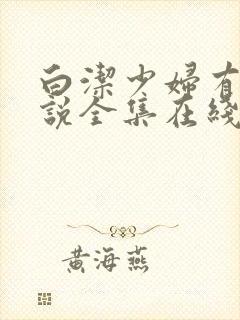 白潔少婦有
說全集在綫
黄海燕